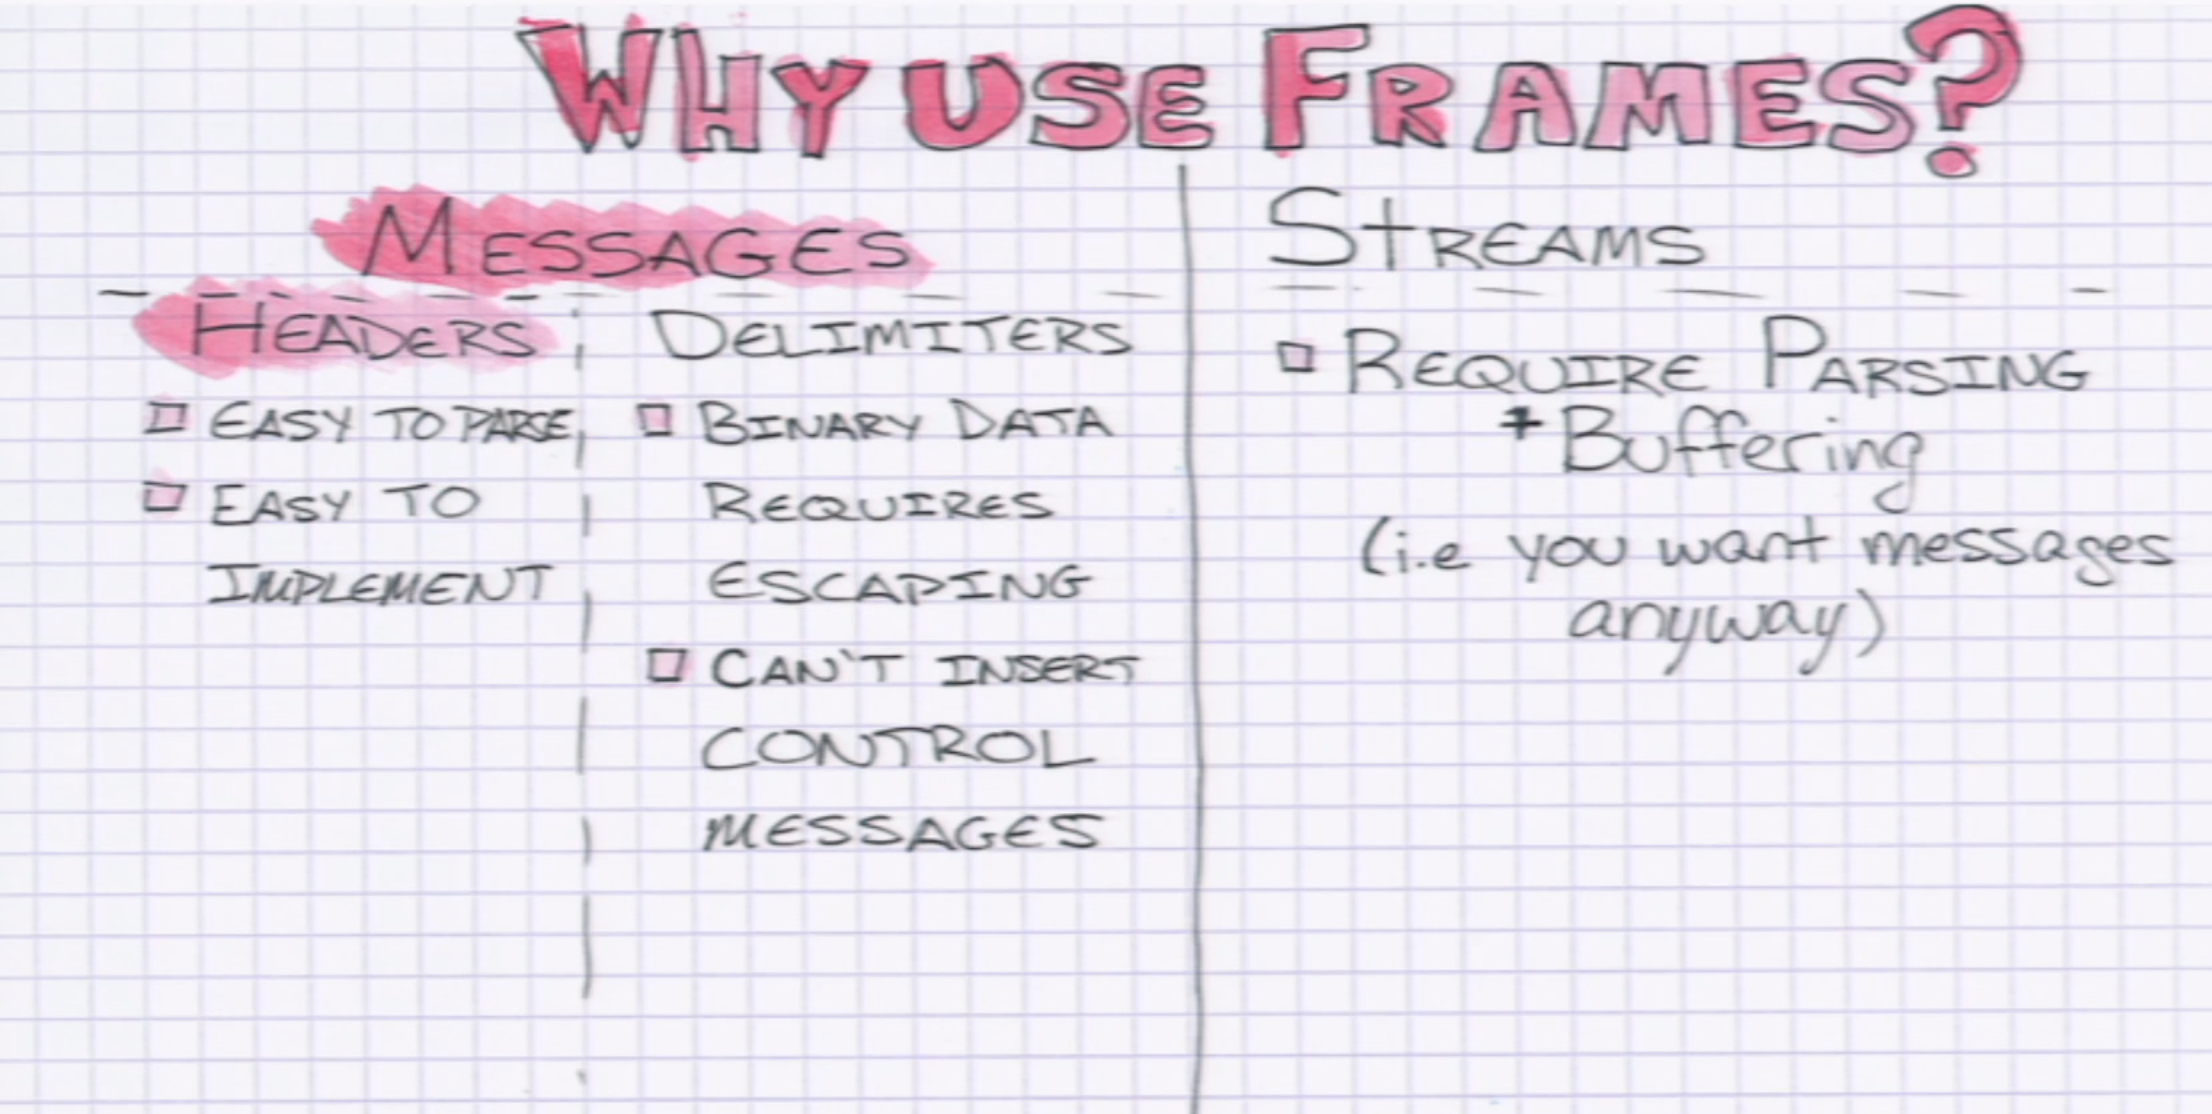 WHY USE FRAMES?
MESSAGES
HEADERS
EASY TO PARSE
EASY TO
IMPLEMENT
DELIMITERS
BINARY DATA
REQUIRES
ESCAPING
CAN'T INSERT
CONTROL
MESSAGES
STREAMS
REQUIRE PARSING
+ Buffering
(i.e you want messages
anyway)